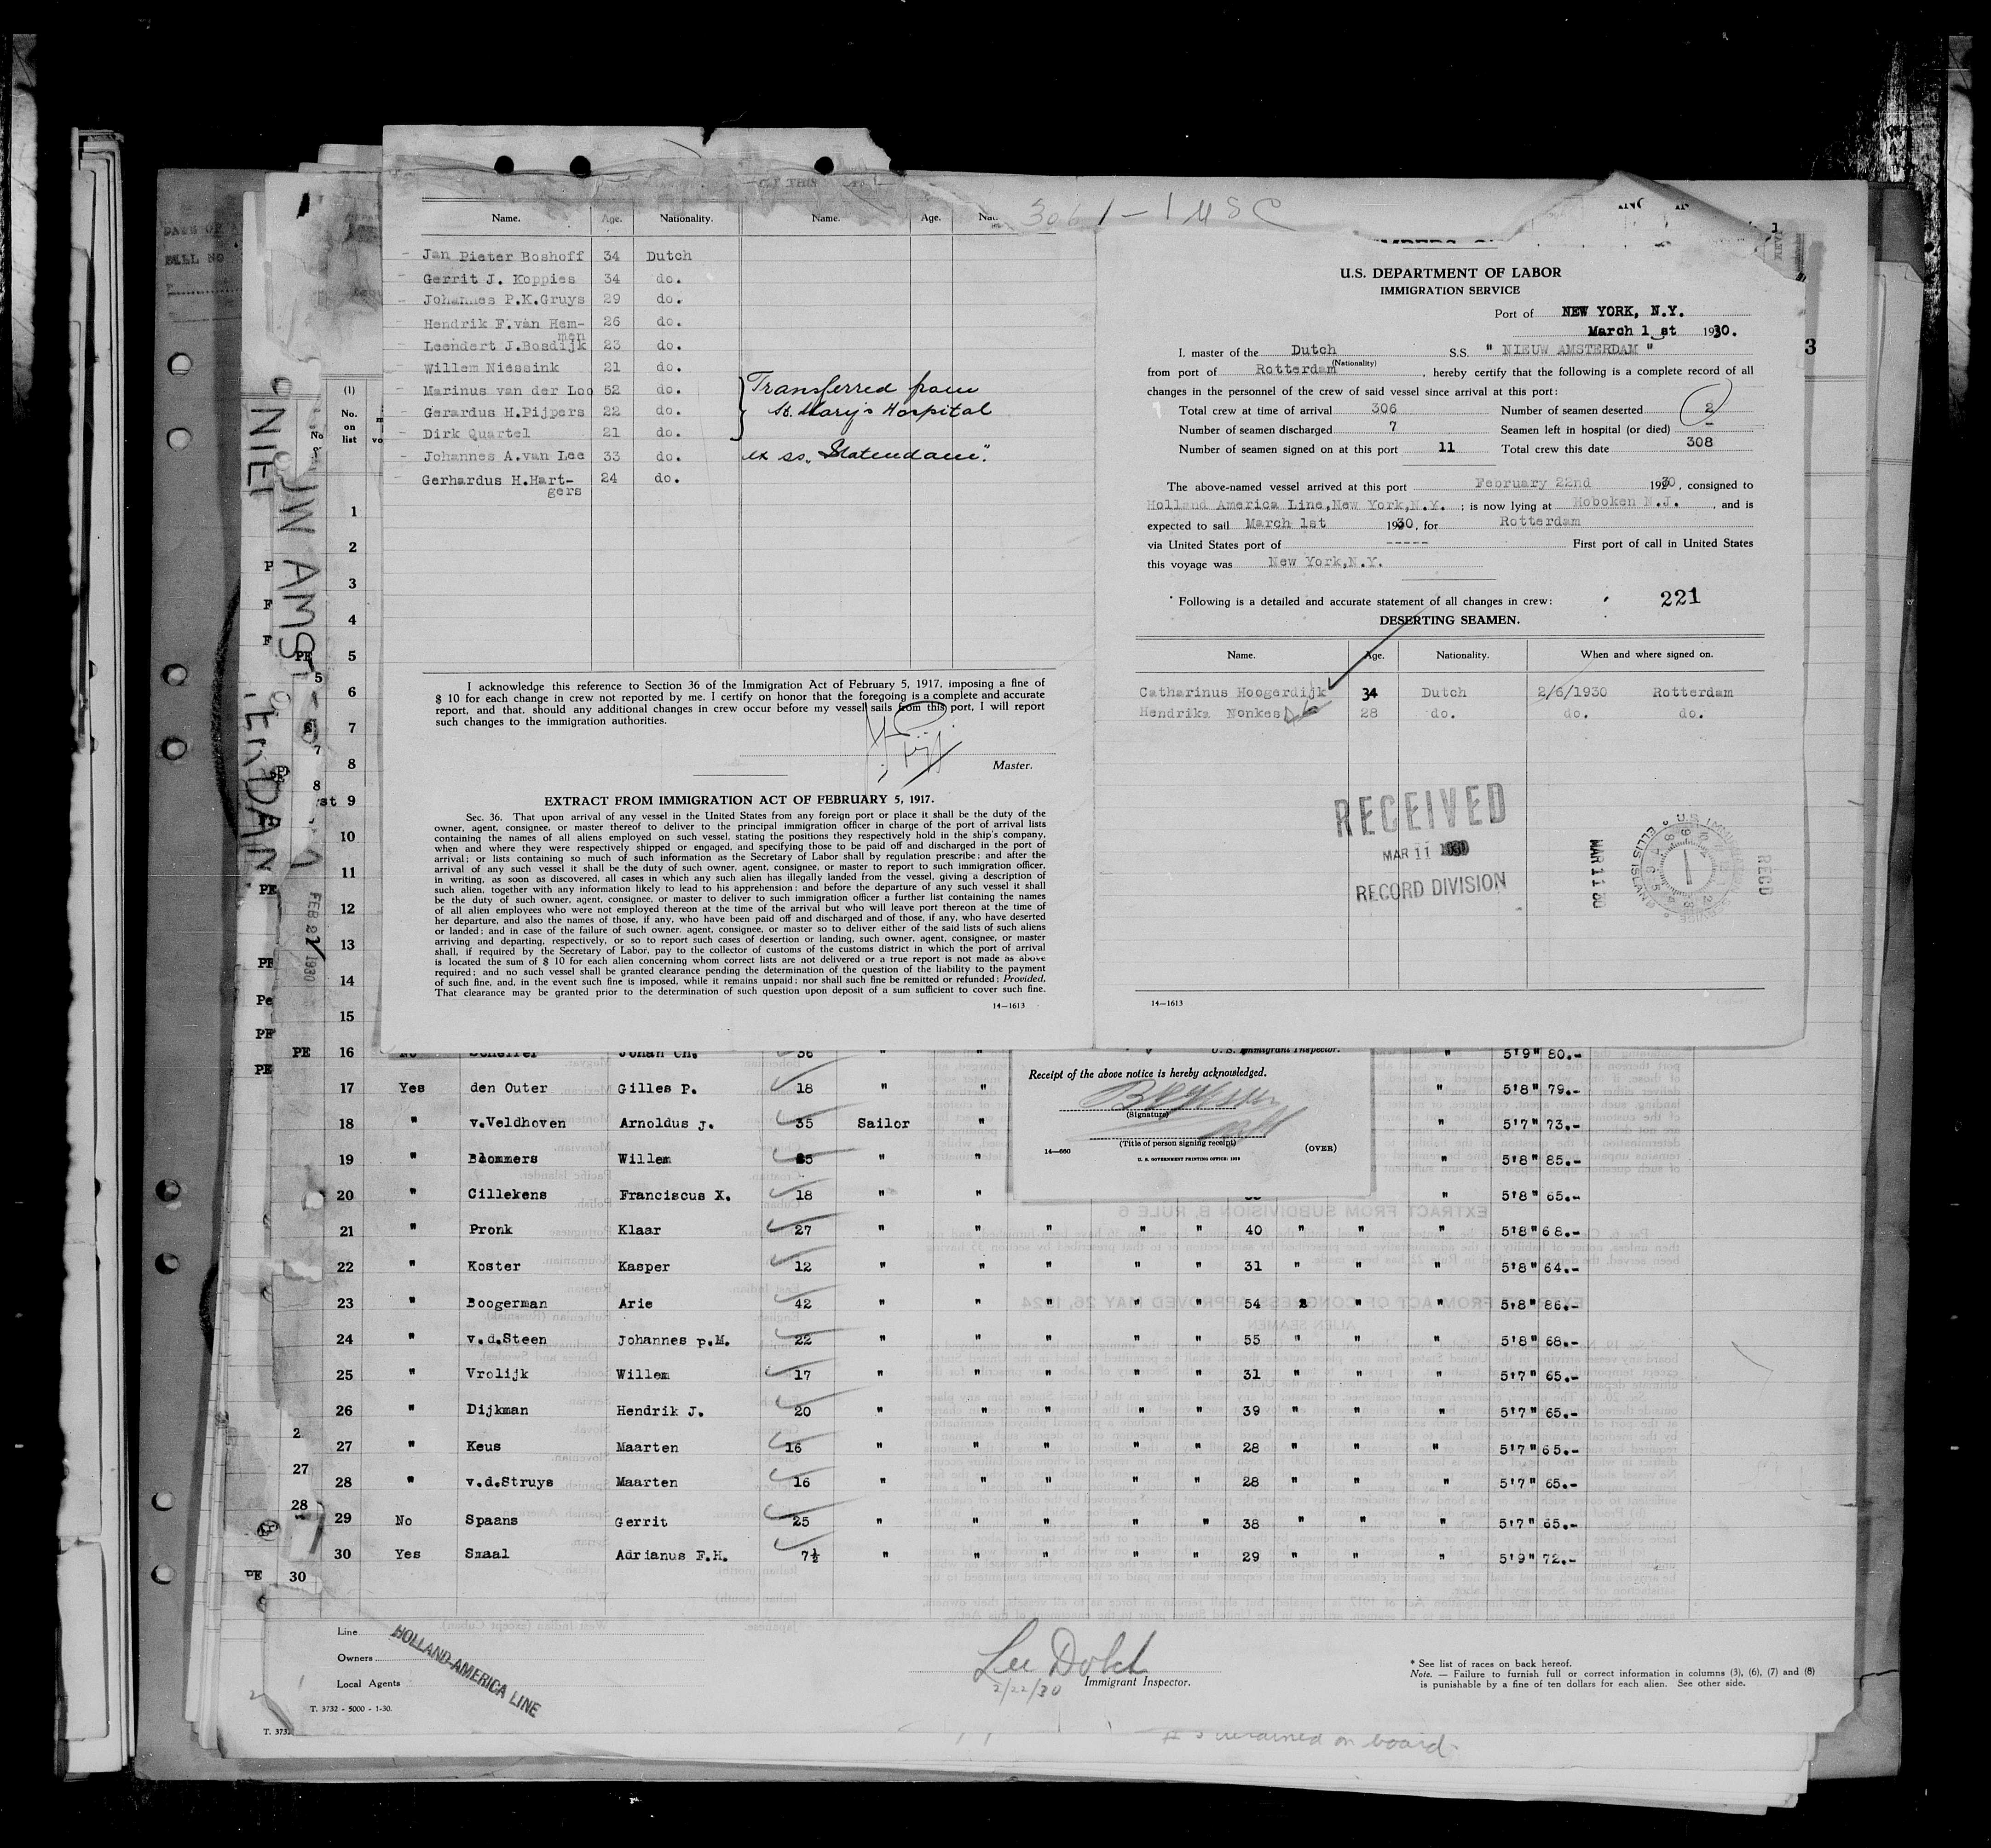 3061-1 USC
Name. Age. Nationality. Name. Age.
Jan Pieter Boshoff 34 Dutch
Gerrit J. Koppies 34 do.
Johannes P.K.Gruys 29 do.
Hendrik F.van Hem-
men 26 do.
Leendert J.Bosdijk 23 do.
Willem Niessink 21 do.
Marinus van der Loo 52 do.
Gerardus H.Pijpers 22 do.
Dirk Quartel 21 do.
Johannes A.van Lee 33 do.
Gerhardus H.Hart-
gers 24 do.
Transferred from
St. Mary's Hospital
ex ss. "Statendam".
I acknowledge this reference to Section 36 of the Immigration Act of February 5, 1917, imposing a fine of
$ 10 for each change in crew not reported by me. I certify on honor that the foregoing is a complete and accurate
report, and that, should any additional changes in crew occur before my vessel sails from this port, I will report
such changes to the immigration authorities.
Master.
EXTRACT FROM IMMIGRATION ACT OF FEBRUARY 5, 1917.
Sec. 36. That upon arrival of any vessel in the United States from any foreign port or place it shall be the duty of the
owner, agent, consignee, or master thereof to deliver to the principal immigration officer in charge of the port of arrival lists
containing the names of all aliens employed on such vessel, stating the positions they respectively hold in the ship's company,
when and where they were respectively shipped or engaged, and specifying those to be paid off and discharged in the port of
arrival; or lists containing so much of such information as the Secretary of Labor shall by regulation prescribe; and after the
arrival of any such vessel it shall be the duty of such owner, agent, consignee, or master to report to such immigration officer,
in writing, as soon as discovered, all cases in which any such alien has illegally landed from the vessel, giving a description of
such alien, together with any information likely to lead to his apprehension; and before the departure of any such vessel it shall
be the duty of such owner, agent, consignee, or master to deliver to such immigration officer a further list containing the names
of all alien employees who were not employed thereon at the time of the arrival but who will leave port thereon at the time of
her departure, and also the names of those, if any, who have been paid off and discharged and of those, if any, who have deserted
or landed; and in case of the failure of such owner. agent, consignee, or master so to deliver either of the said lists of such aliens
arriving and departing, respectively, or so to report such cases of desertion or landing, such owner, agent, consignee, or master
shall, if required by the Secretary of Labor, pay to the collector of customs of the customs district in which the port of arrival
is located the sum of $ 10 for each alien concerning whom correct lists are not delivered or a true report is not made as above
required; and no such vessel shall be granted clearance pending the determination of the question of the liability to the payment
of such fine, and, in the event such fine is imposed, while it remains unpaid; nor shall such fine be remitted or refunded; Provided,
That clearance may be granted prior to the determination of such question upon deposit of a sum sufficient to cover such fine.
14—1613
U.S. DEPARTMENT OF LABOR
IMMIGRATION SERVICE
Port of NEW YORK, N.Y.
March 1 st 1930.
I. master of the Dutch S.S. " NIEUW AMSTERDAM "
(Nationality)
from port of Rotterdam, hereby certify that the following is a complete record of all
changes in the personnel of the crew of said vessel since arrival at this port:
Total crew at time of arrival 306 Number of seamen deserted 2
Number of seamen discharged 7 Seamen left in hospital (or died) -
Number of seamen signed on at this port 11 Total crew this date 308
The above-named vessel arrived at this port February 22nd 1930, consigned to
Holland America Line,New York,N.Y. ; is now lying at Hoboken N.J. , and is
expected to sail March 1st 1930, for Rotterdam
via United States port of ----- First port of call in United States
this voyage was New York,N.Y.
Following is a detailed and accurate statement of all changes in crew: 221
DESERTING SEAMEN.
Name. Age. Nationality. When and where signed on.
Catharinus Hoogerdijk 34 Dutch 2/6/1930 Rotterdam
Hendrika Nonkes 28 do. do. do.
RECEIVED
MAR 11 1930
RECORD DIVISION
MAR 11 30
U.S. IMMIGRATION
ELLIS ISLAND
REC'D
14—1613
3
FEB 22 1930
(1)
No.
on
list
1
2
3
4
5
6
7
8
9
10
11
12
13
14
15
16 No Scheffer Johan Ch. 36 " " " 5'9" 80.-
17 Yes den Outer Gilles P. 18 " " " 5'8" 79.-
18 " v.Veldhoven Arnoldus J. 35 Sailor " " 5'7" 73.-
19 " Blommers Willem 25 " " " 5'8" 85.-
20 " Cillekens Franciscus X. 18 " " " 5'8" 65.-
21 " Pronk Klaar 27 " " " " " 40 " " " 5'8" 68.-
22 " Koster Kasper 12 " " " " " 31 " " " 5'8" 64.-
23 " Boogerman Arie 42 " " " " " 54 2 " " 5'8" 86.-
24 " v.d.Steen Johannes p.M. 22 " " " " " 55 " " " 5'8" 68.-
25 " Vrolijk Willem 17 " " " " " 31 " " " 5'7" 65.-
26 " Dijkman Hendrik J. 20 " " " " " 39 " " " 5'7" 65.-
27 " Keus Maarten 16 " " " " " 28 " " " 5'7" 65.-
28 " v.d.Struys Maarten 16 " " " " " 28 " " " 5'7" 65.-
29 No Spaans Gerrit 25 " " " " " 38 " " " 5'7" 65.-
30 Yes Smaal Adrianus F.H. 7½ " " " " " 29 " " " 5'9" 72.-
U.S. Immigrant Inspector.
Receipt of the above notice is hereby acknowledged.
(Signature)
(Title of person signing receipt)
14—660 (OVER)
U. S. GOVERNMENT PRINTING OFFICE
Line
Owners
Local Agents
HOLLAND-AMERICA LINE
T. 3732 - 5000 - 1-30.
T. 3732
Lee Dolch
2/22/30 Immigrant Inspector.
* See list of races on back hereof.
Note. — Failure to furnish full or correct information in columns (3), (6), (7) and (8)
is punishable by a fine of ten dollars for each alien. See other side.
retained on board